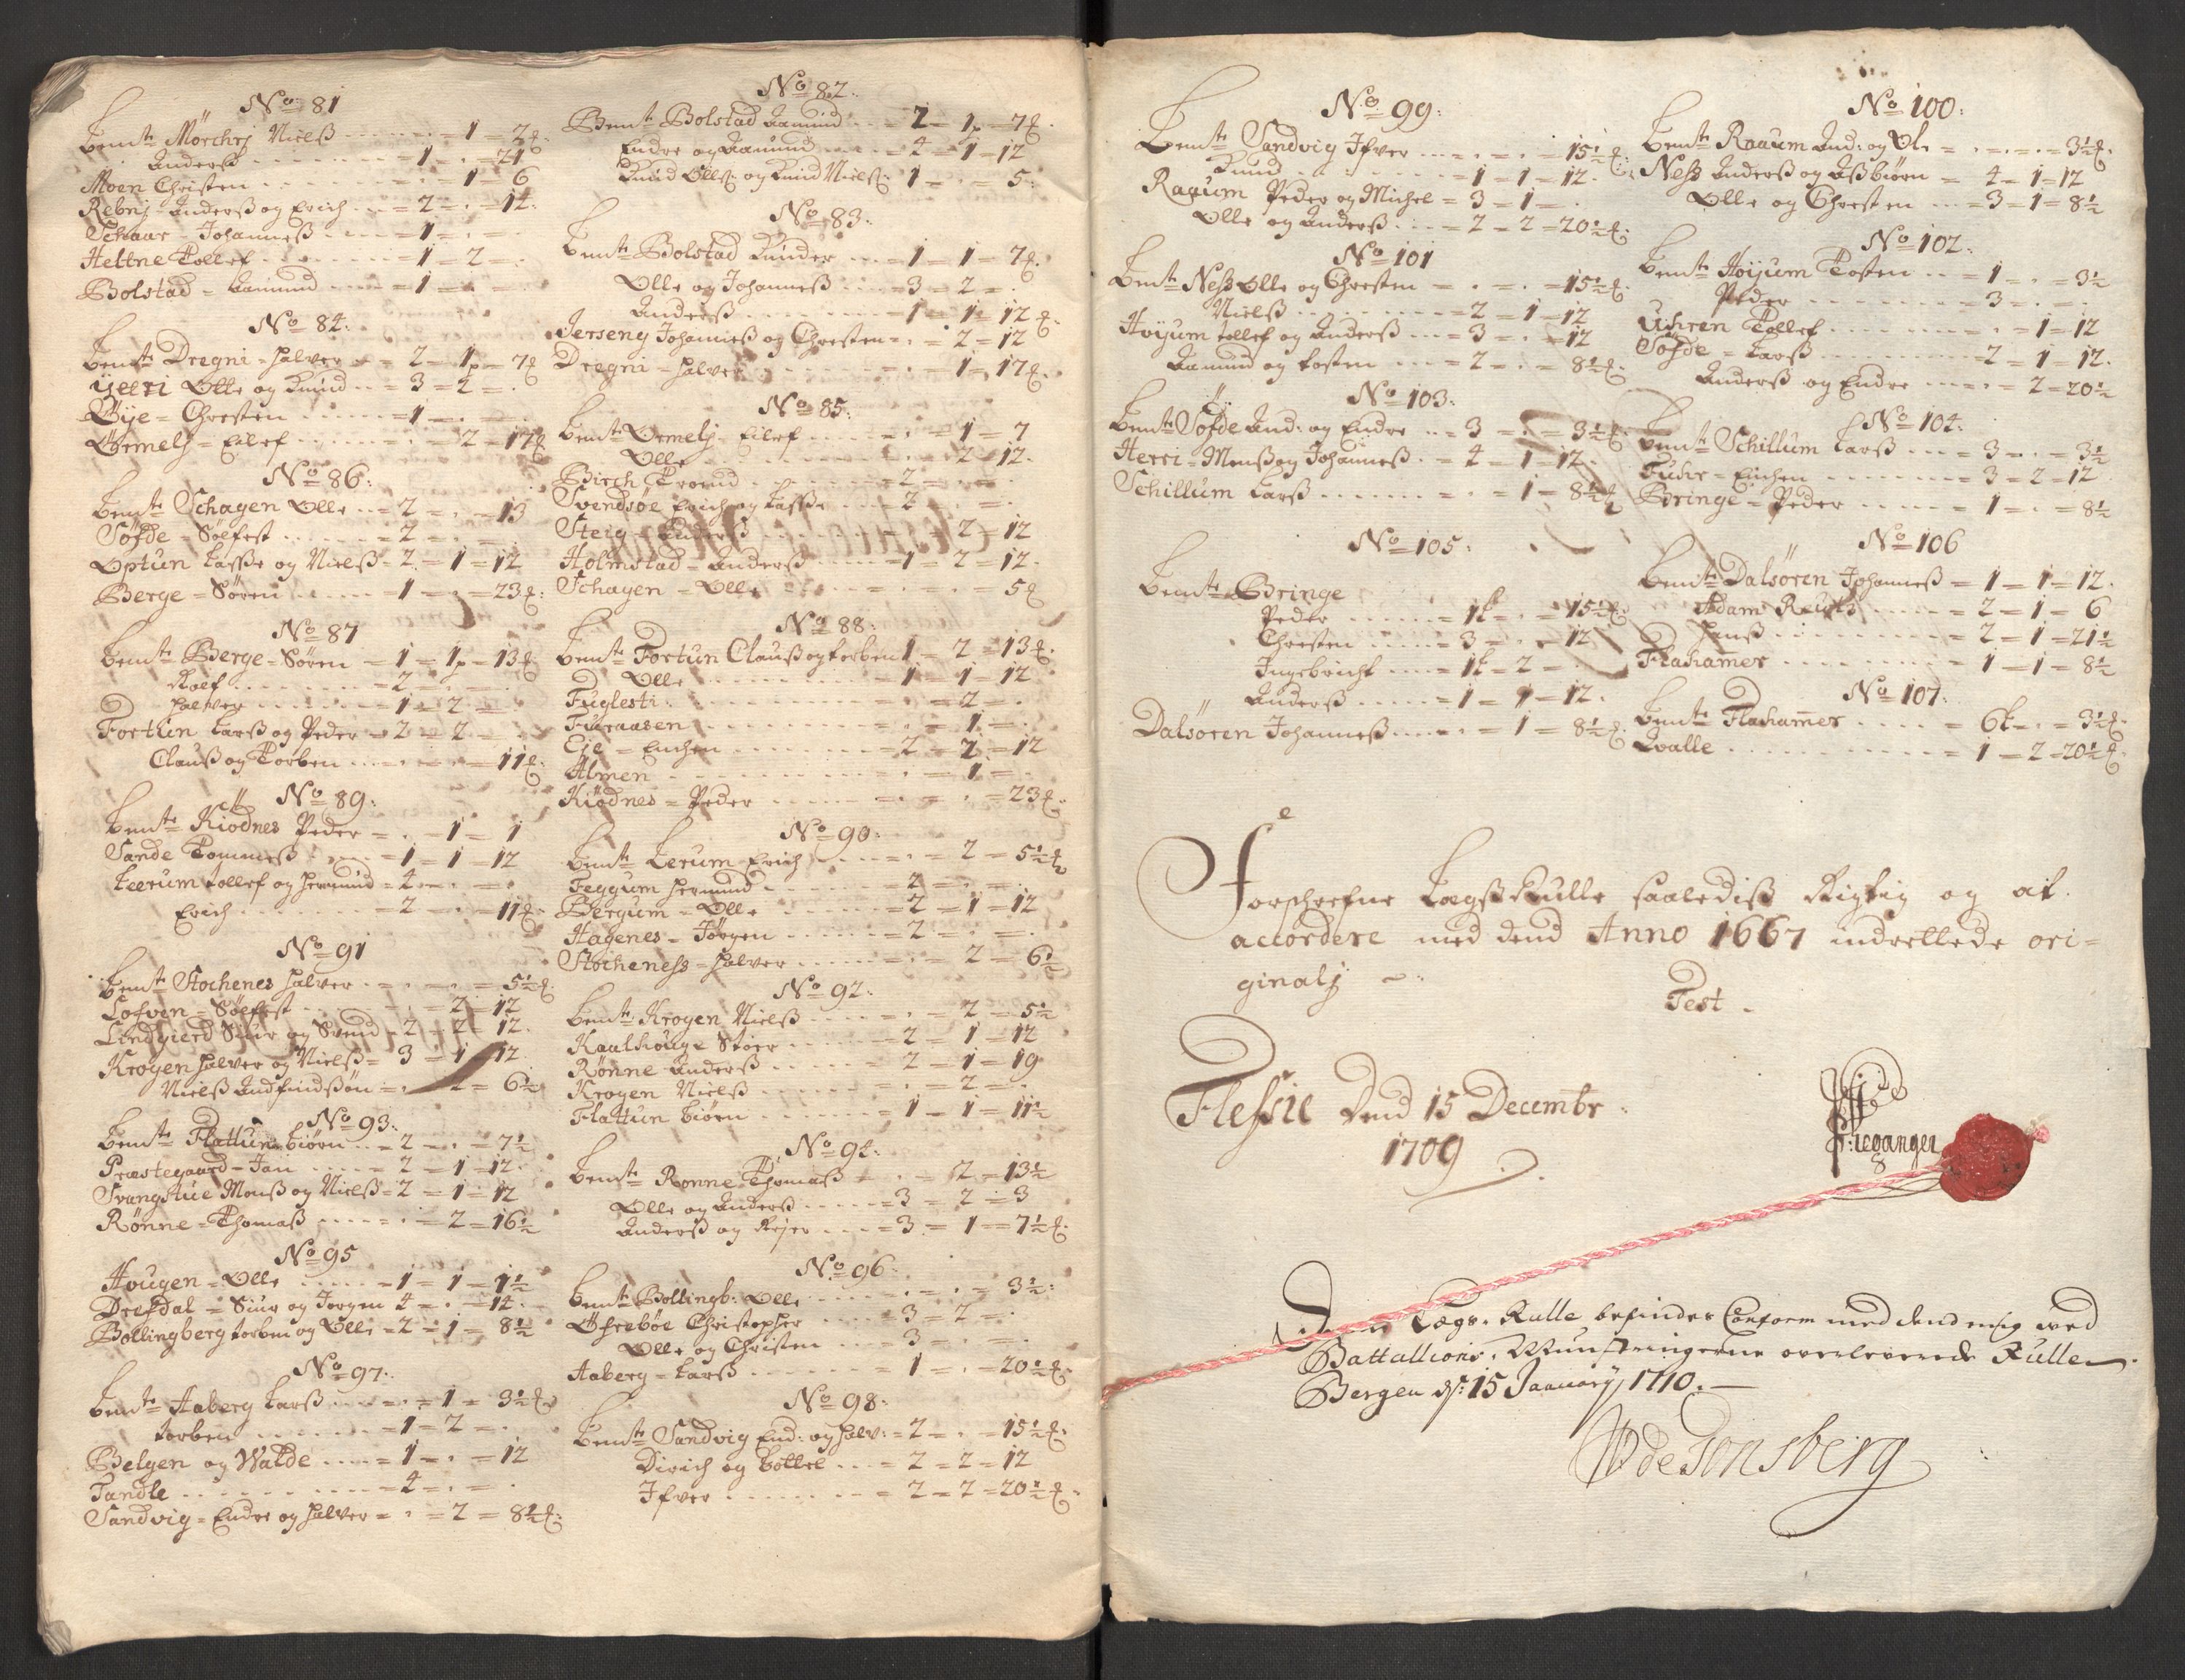 No 81
bemte Mörchrj Nielß - - - = 1 = 2 ₰.
Anderß - - - - = 1 = . = 21
Moen Christen - - - - = 1 = 6
Rebnj = Anderß og Erich - - = 2 = . = 14.
Schaar - Johanneß - - - = 1 = . =
Heltne Tollef - - - - = 1 = 2 = .
Bolstad = Aamund - - - = 1 = . =
No 84:
bemte Dregni = Halver - = 2 = 1p = 7 ₰
Yttri Olle og Knud - - = 3 = 2 = .
Øÿe = Christen - - - = 1 = . =
Ormelj = Eilef - - - = . = 2 = 17 ₰
No 86:
bemte Schagen Olle - - = 2 = . = 13
Söfde = Sölfest - - - = 2 = . = .
Optun Lasse og Nielß = 2 = 1 = 12
Berge = Sören - - - = 1 = . = 23 ₰:
No 87
bemte Berge = Sören = 1 = 1p = 13 ₰
Rolf - - - - = 2 = . = .
Halver - - - - = 1 = 2 = .
Fortun Larß og Peder = 2 = 2 = .
Clauß og Torben - - = . = . = 11 ₰.
No 89:
bemte Kiödnes Peder = . = 1 = 1
Sande Tommeß - - = 1 = 1 = 12
Leerum tollef og Hermund = 4 = . = .
Erich - - - - = 2 = . = 11 ₰.
No 91
bemte Stochenes Halver - - = . = 5½ ₰.
Lofven = Sölfest - - - = 2 = 12
Lindgierd Siur og Svend = 2 = 2 = 12.
Krogen Halver og Nielß = 3 = 1 = 12
Nielß Andfindßön = . = 2 = 6½
No 93:
bemte Flattun biörn - - = 2 = . = 7½
Præstegaard = Jan - - = 2 = 1 = 12.
Svangstue Monß og Nielß = 2 = 1 = 12
Rönne = Thomaß - - - = . = 2 = 16½
No 95
Hougen = Olle - - - = 1 = 1 = 1½
Drefdal = Siur og Jorgen 4 = . = 14.
Bollingberg torben og Olle = 2 = 1 = 8½
No 97.
bemte Aaberg Larß - - = . = 1 = 3½ ₰
torben - - - - = 1 = 2 = .
Belgen og Walde - - = 1 = . = 12
Tandle - - - - = 4 = . = .
Sandvig = Endre og Halver = . = 2 = 8½ ₰.
No 82:
Bemte Bolstad Aamund - - 2 = 1p = 7 ₰.
Endre og Aamund - - - = 4 = 1 = 12
Knud Ollß: og Knud Nielß: 1 = . = 5:
No 83:
bemte Bolstad Gunder - - 1 = 1 = 7 ₰.
Olle og Johanneß - - - = 3 = 2 = .
Anderß - - - - = 1 = 1 = 12 ₰.
Jerseng Johanneß og Christen = . = 2 = 12
Dregni = Halver - - - - = 1 = 17 ₰.
No 85:
bemte Ormelj = Eilef - - - = . = 1 = 7
Olle - - - - - = 2 = 12.
Birch Trond - - - - = 2 = . = .
Svendsöe Erich og Lasse - = 2 = . = .
Steig - Anderß - - - - = 2 = 12
Holmstad = Anderß - - - = 1 = 2 = 12.
Schagen = Olle - - - = . = . = 5 ₰
No 88:
bemte Fortun Clauß og torben 1 = 2 = 13 ₰.
Olle - - - - - = 1 = 1 = 12
Fuglesti - - - - = . = 2 = .
Furaasen - - - - = . = 1 = .
Eÿe = Enchen - - - = 2 = 2 = 12
Almen - - - - = . = 1 = .
Kiödnes = Peder - - - = . = . = 23 ₰.
No 90:
bemte Lerum Erich - - - = . = 2 = 5½ ₰
Feggum Hermund - - - = 2 = . = .
Bergum = Olle - - - = 2 = 1 = 12
Hagenes = Jörgen - - = 2 = . = .
Stocheneß = Halver - - = . = 2 = 6½
No 92:
bemte Krogen Nielß - - = . = 2 = 5½
Kaalhoug = Stöer - - = 2 = 1 = 12
Rönne Anderß - - - = 2 = 1 = 19
Krogen Nielß - - - = . = 2 = .
Flattun biörn - - - = 1 = 1 = 11½
No 94:
bemte Ronne Thomaß = . = 2 = 13½
Olle og Anderß - - - = 3 = 2 = 3
Anderß og Rejer - - - = 3 = 1 = 7½ ₰.
No 96.
bemte Bollingb: Olle - - = . = . = 3½:
Öfreböe Christopher - - = 3 = 2 = .
Olle og Christen - - = 3 = . = .
Aaberg = Larß - - - = 1 = . = 20½ ₰.
No 98:
bemte Sandvig End: og Halv: = 2 = . = 15½ ₰.
Dirich og bottel - - - = 2 = 2 = 12
Ifver - - - - = 2 = 2 = 20½ ₰.
No 99:
bemte Sandvig Ifver - - = . = . = 15½ ₰.
Knud - - - - = 1 = 1 = 12.
Raaum Peder og Michel = 3 = 1 = .
Olle og Anderß - - = 2 = 2 = 20½ ₰.
No 101
bemte Neß Olle og Christen = . = . = 15½ ₰.
Nielß - - - - = 2 = 1 = 12
Höÿum tollef og Anderß - - = 3 = . = 12
Aamund og tosten - - = 2 = . = 8½ ₰.
No 103:
bemte Söfde And: og Endre - = 3 = . = 3½ ₰.
Herri = Monß og Johanneß = 4 = 1 = 12.
Schillum Larß - - - = . = 1 = 8½ ₰
No 105:
bemte Bringe
Peder - - - = 1t = . = 15½ ₰.
Christen - - - = 3 = . = 12
Ingebricht - - = 1t = 2 = .
Anderß - - - = 1 = 1 = 12.
Dalsören Johanneß - - = . = 1 = 8½ ₰.
No 100:
bemte Raaum And: og Ole = . = . = 3½ ₰.
Neß Anderß og Aßbiörn = 4 = 1 = 12
Olle og Christen - - = 3 = 1 = 8½
No 102:
bemte Höÿum Tosten - - = 1 = . = 3½
Peder - - - - = 3 = . = .
Uhren Tollef - - - - = . = 1 = 12
Söfde = Larß - - - - 2 = 1 = 12.
Anderß og Endre - - - = 2 = 20½
No 104:
bemte Schillum Larß - - = 3 = . = 3½
Fuhr = Enchen - - - = 3 = 2 = 12
Bringe = Peder - - - = 1 = . = 8½
No 106
bemte Dalsören Johanneß = 1 = 1 = 12.
Adam - - - = 2 = 1 = 6
Hanß - - - - = 2 = 1 = 21½
Flahamer - - - - = 1 = 1 = 8½
No 107:
bemte Flahamer - - - = 6t = . = 3½ ₰.
Qvalle - - - - = 1 = 2 = 20½ ₰.
Forschrefne Lægß Rulle saalediß Rigtig og at
accordere med dend Anno 1667 indrettede ori=
ginalj
Test.
Flessie dend 15 Decembr:
1709
Dene Lægs-Rulle befindes Conform med dend mig ved
Battallions-Mynstringerne overleverede Rulle
Bergen ds: 15 January 1710.
de Tonsberg